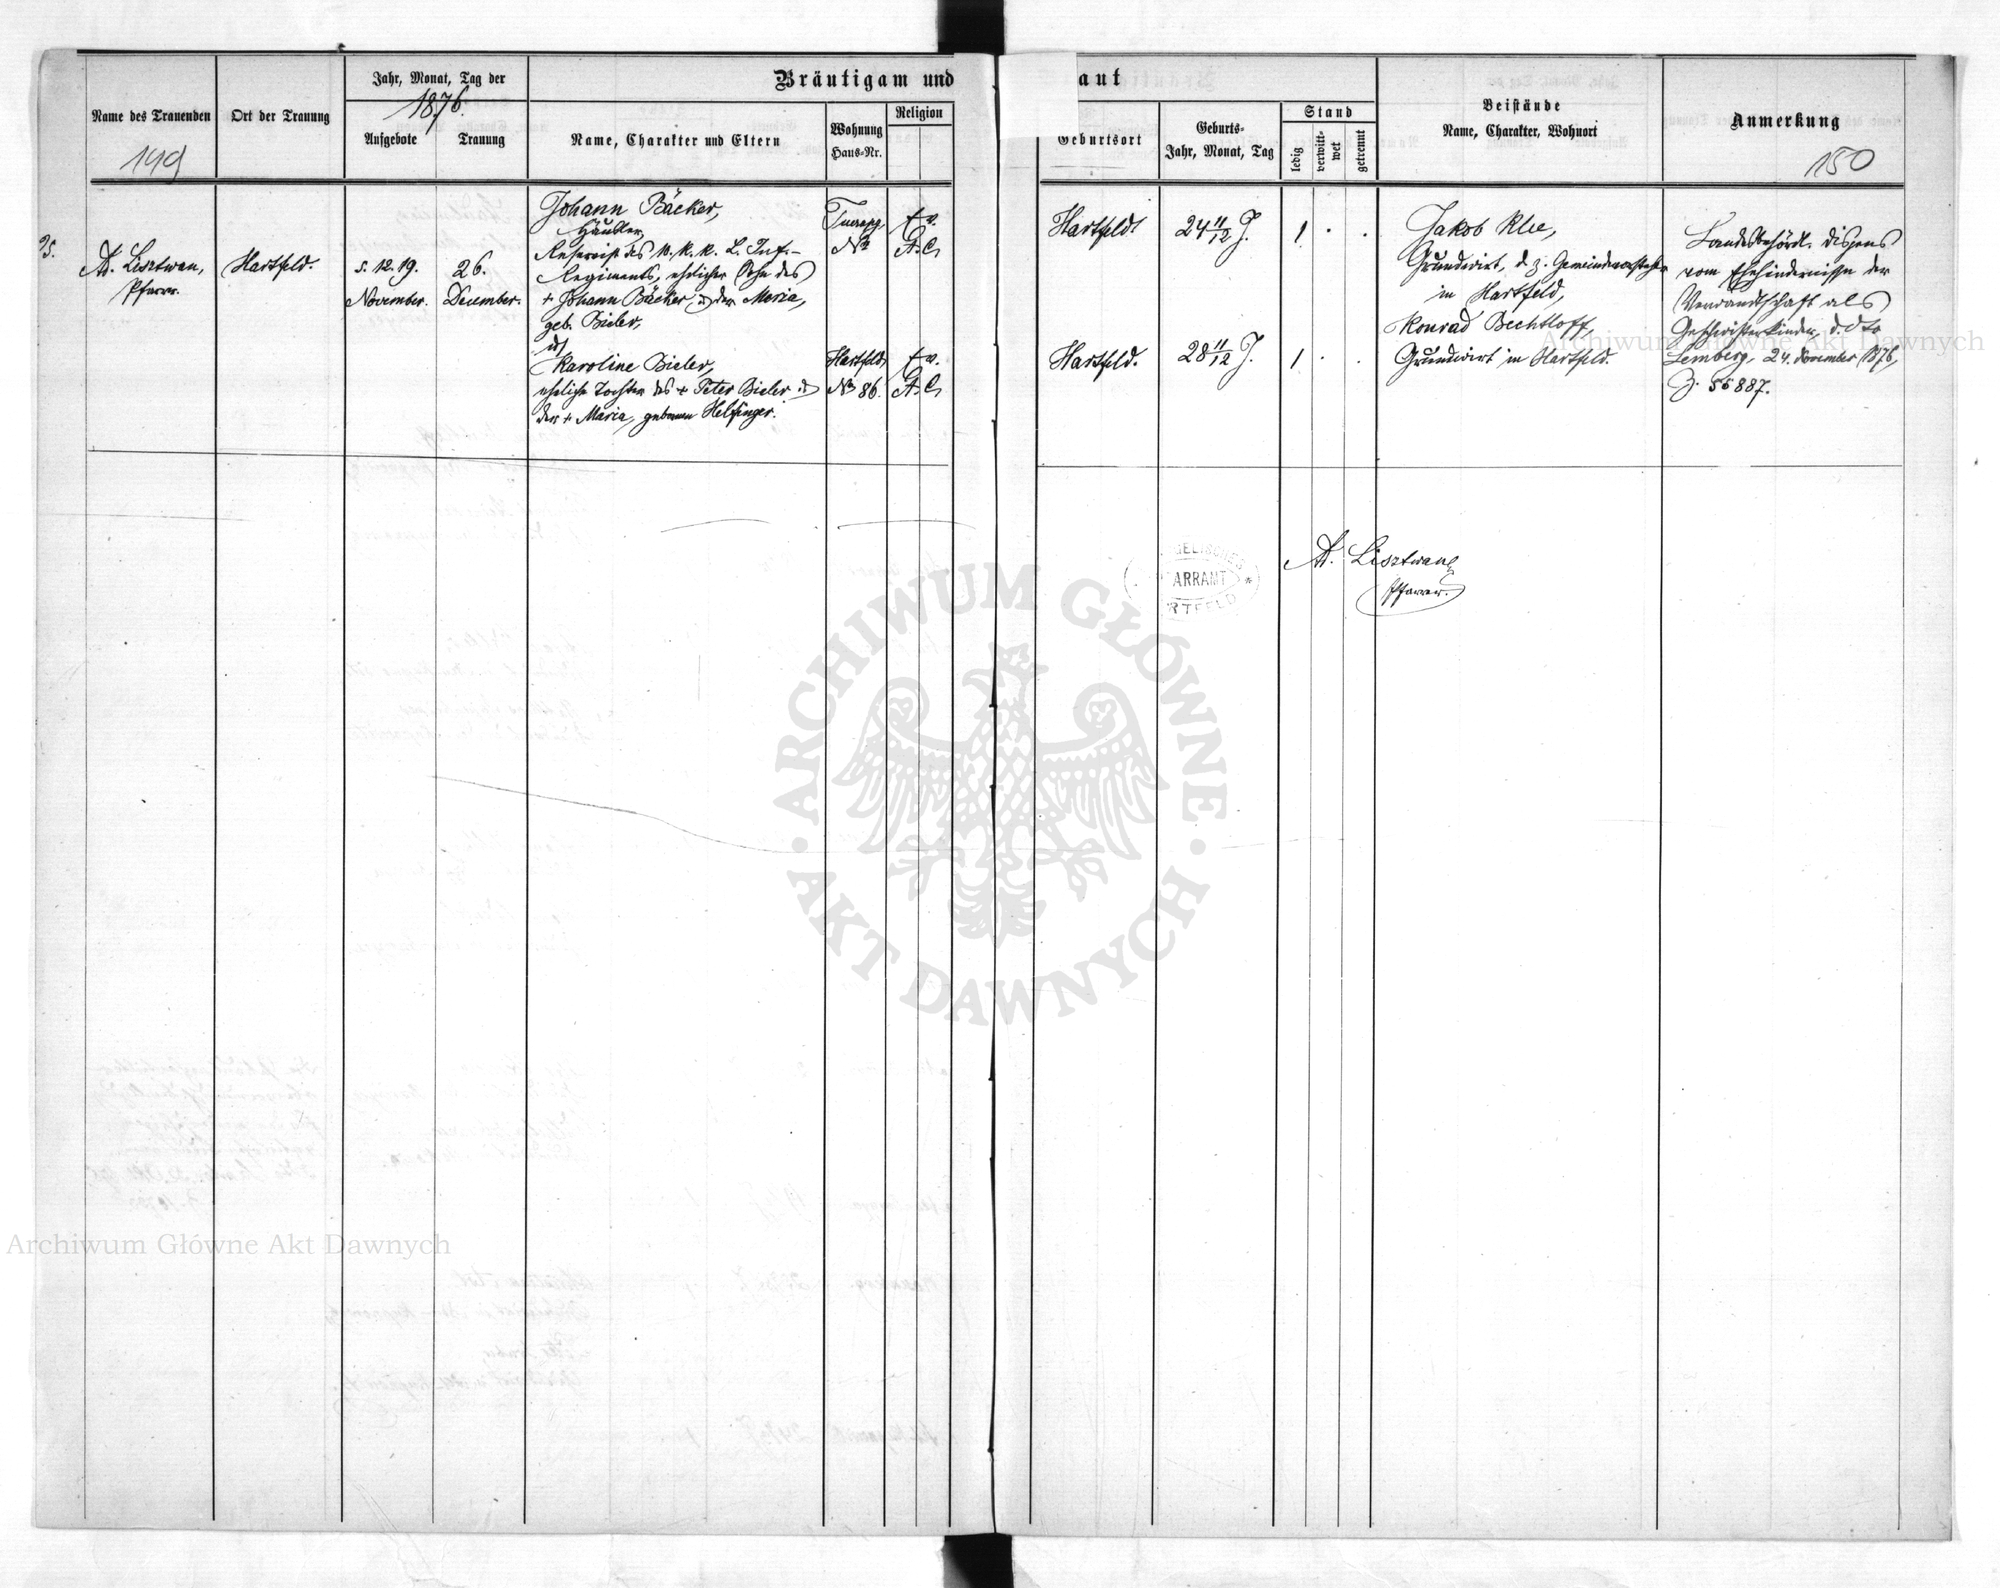 Jahr, Monat, Tag der
1876.
Bräutigam und
aut
Name des Trauenden
Ort der Trauung
Aufgebote
Trauung
Name, Charakter und Eltern
Wohnung
Haus-Nr.
Religion
Geburtsort
Geburts-
Jahr, Monat, Tag
Stand
ledig
verwitt-
wet
getrennt
Beistände
Name, Charakter, Wohnort
Anmerkung
149
150
A. Lisztwan,
Pfarrer.
Hartfeld.
5. 12. 19.
November.
26.
December.
Johann Bäcker,
Häusler,
Reservist des k. k. L. Inf.-
Regiments, ehelicher Sohn des
+ Johann Bäcker u der Maria,
geb. Bieler,
Karoline Bieler,
eheliche Tochter des + Peter Bieler u
der + Maria, gebornen Helfinger.
No
Hartfeld
No 86.
Ev.
A. C.
Ev.
A. C.
Hartfeld
24 11/12 J.
1 . .
Hartfeld.
28 11/12 J.
1 . .
Jakob Klee,
Grundwirt, d. z. Gemeindevorsteher
in Hartfeld,
Konrad Bechtloff,
Grundwirt in Hartfeld.
Landesbehördl. Dispens
vom Ehehindernisse der
Verwandtschaft als
Geschwisterkinder, d.dto
Lemberg, 24. November 1876,
Z. 55887.
GELISCHES
ARRAMT *
RTFELD
A. Lisztwan
Pfarrer.
ARCHIWUM GŁÓWNE
AKT DAWNYCH
Archiwum Główne Akt Dawnych
Archiwum Główne Akt Dawnych